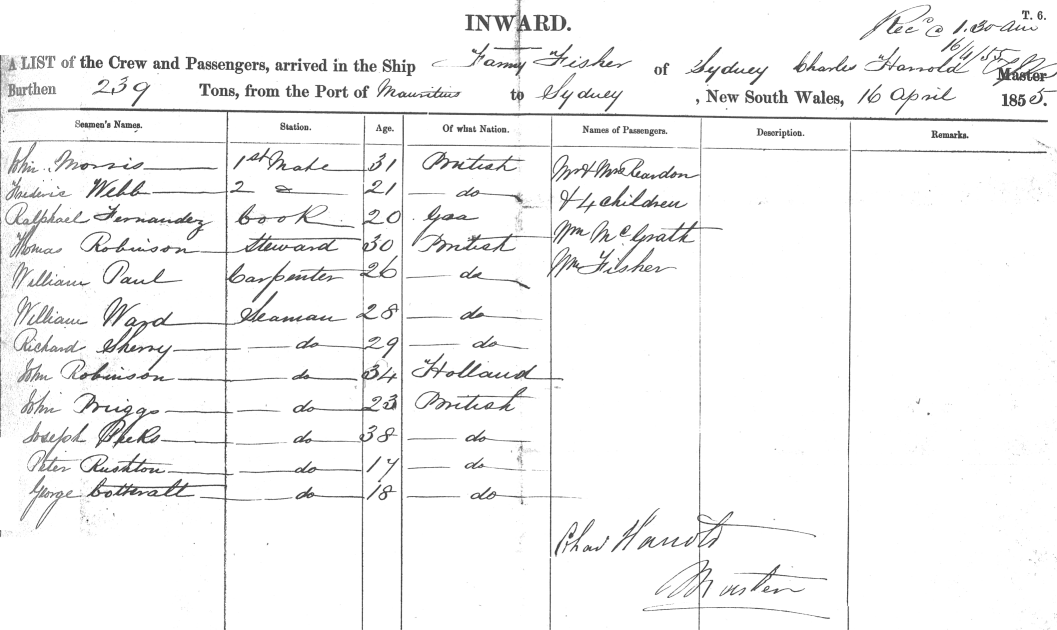 INWARD.
T. 6.
Rec'd @ 1.30 am
16/4/55
A LIST of the Crew and Passengers, arrived in the Ship Fanny Fisher of Sydney Charles Harrold Master
Burthen 239 Tons, from the Port of Mauritius to Sydney, New South Wales, 16 April 1855.
Seamen's Names. Station. Age. Of what Nation. Names of Passengers. Description. Remarks.
John Morris 1st Mate 31 British Mr & Mrs Reardon
Frederic Webb 2 do 21 do & 4 children
Ralphael Fernandez Cook 20 Goa Wm McGrath
Thomas Robinson Steward 30 British Wm Fisher
William Paul Carpenter 26 do
William Ward Seaman 28 do
Richard Sherry do 29 do
John Robinson do 34 Holland
John Briggs do 23 British
Joseph do 38 do
Peter Rushton do 17 do
George Cotteralt do 18 do
Chas Harrold
Master